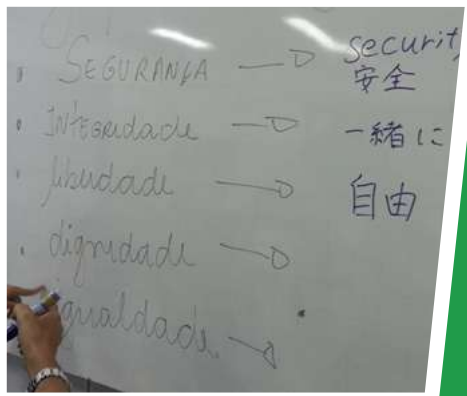 SEGURANÇA → security
安全
INTEGRIdade → 一緒に
liberdade → 自由
dignidade →
igualdade. →